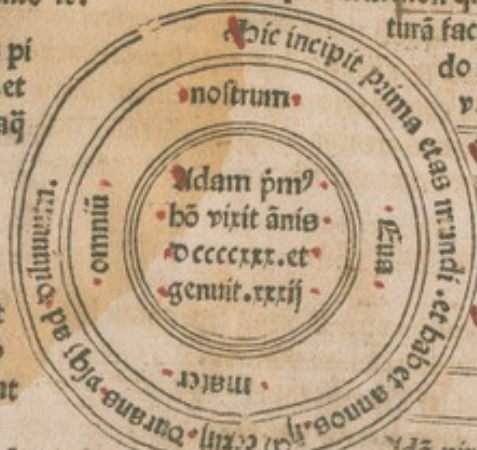 pi
et
aq̄
turā fac
do
Hic incipit prima etas mundi. et habet annos
durans vsqꝫ ad diluuium.
nostrum
Eua
mater
omniū
Adam pͥmꝰ
hō vixit ānis
Dccccxxx. et
genuit. xxxij